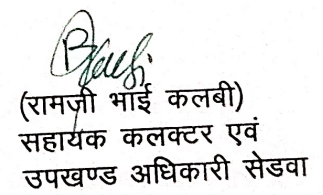 (रामजी भाई कलबी)
सहायक कलक्टर एवं
उपखण्ड अधिकारी सेडवा